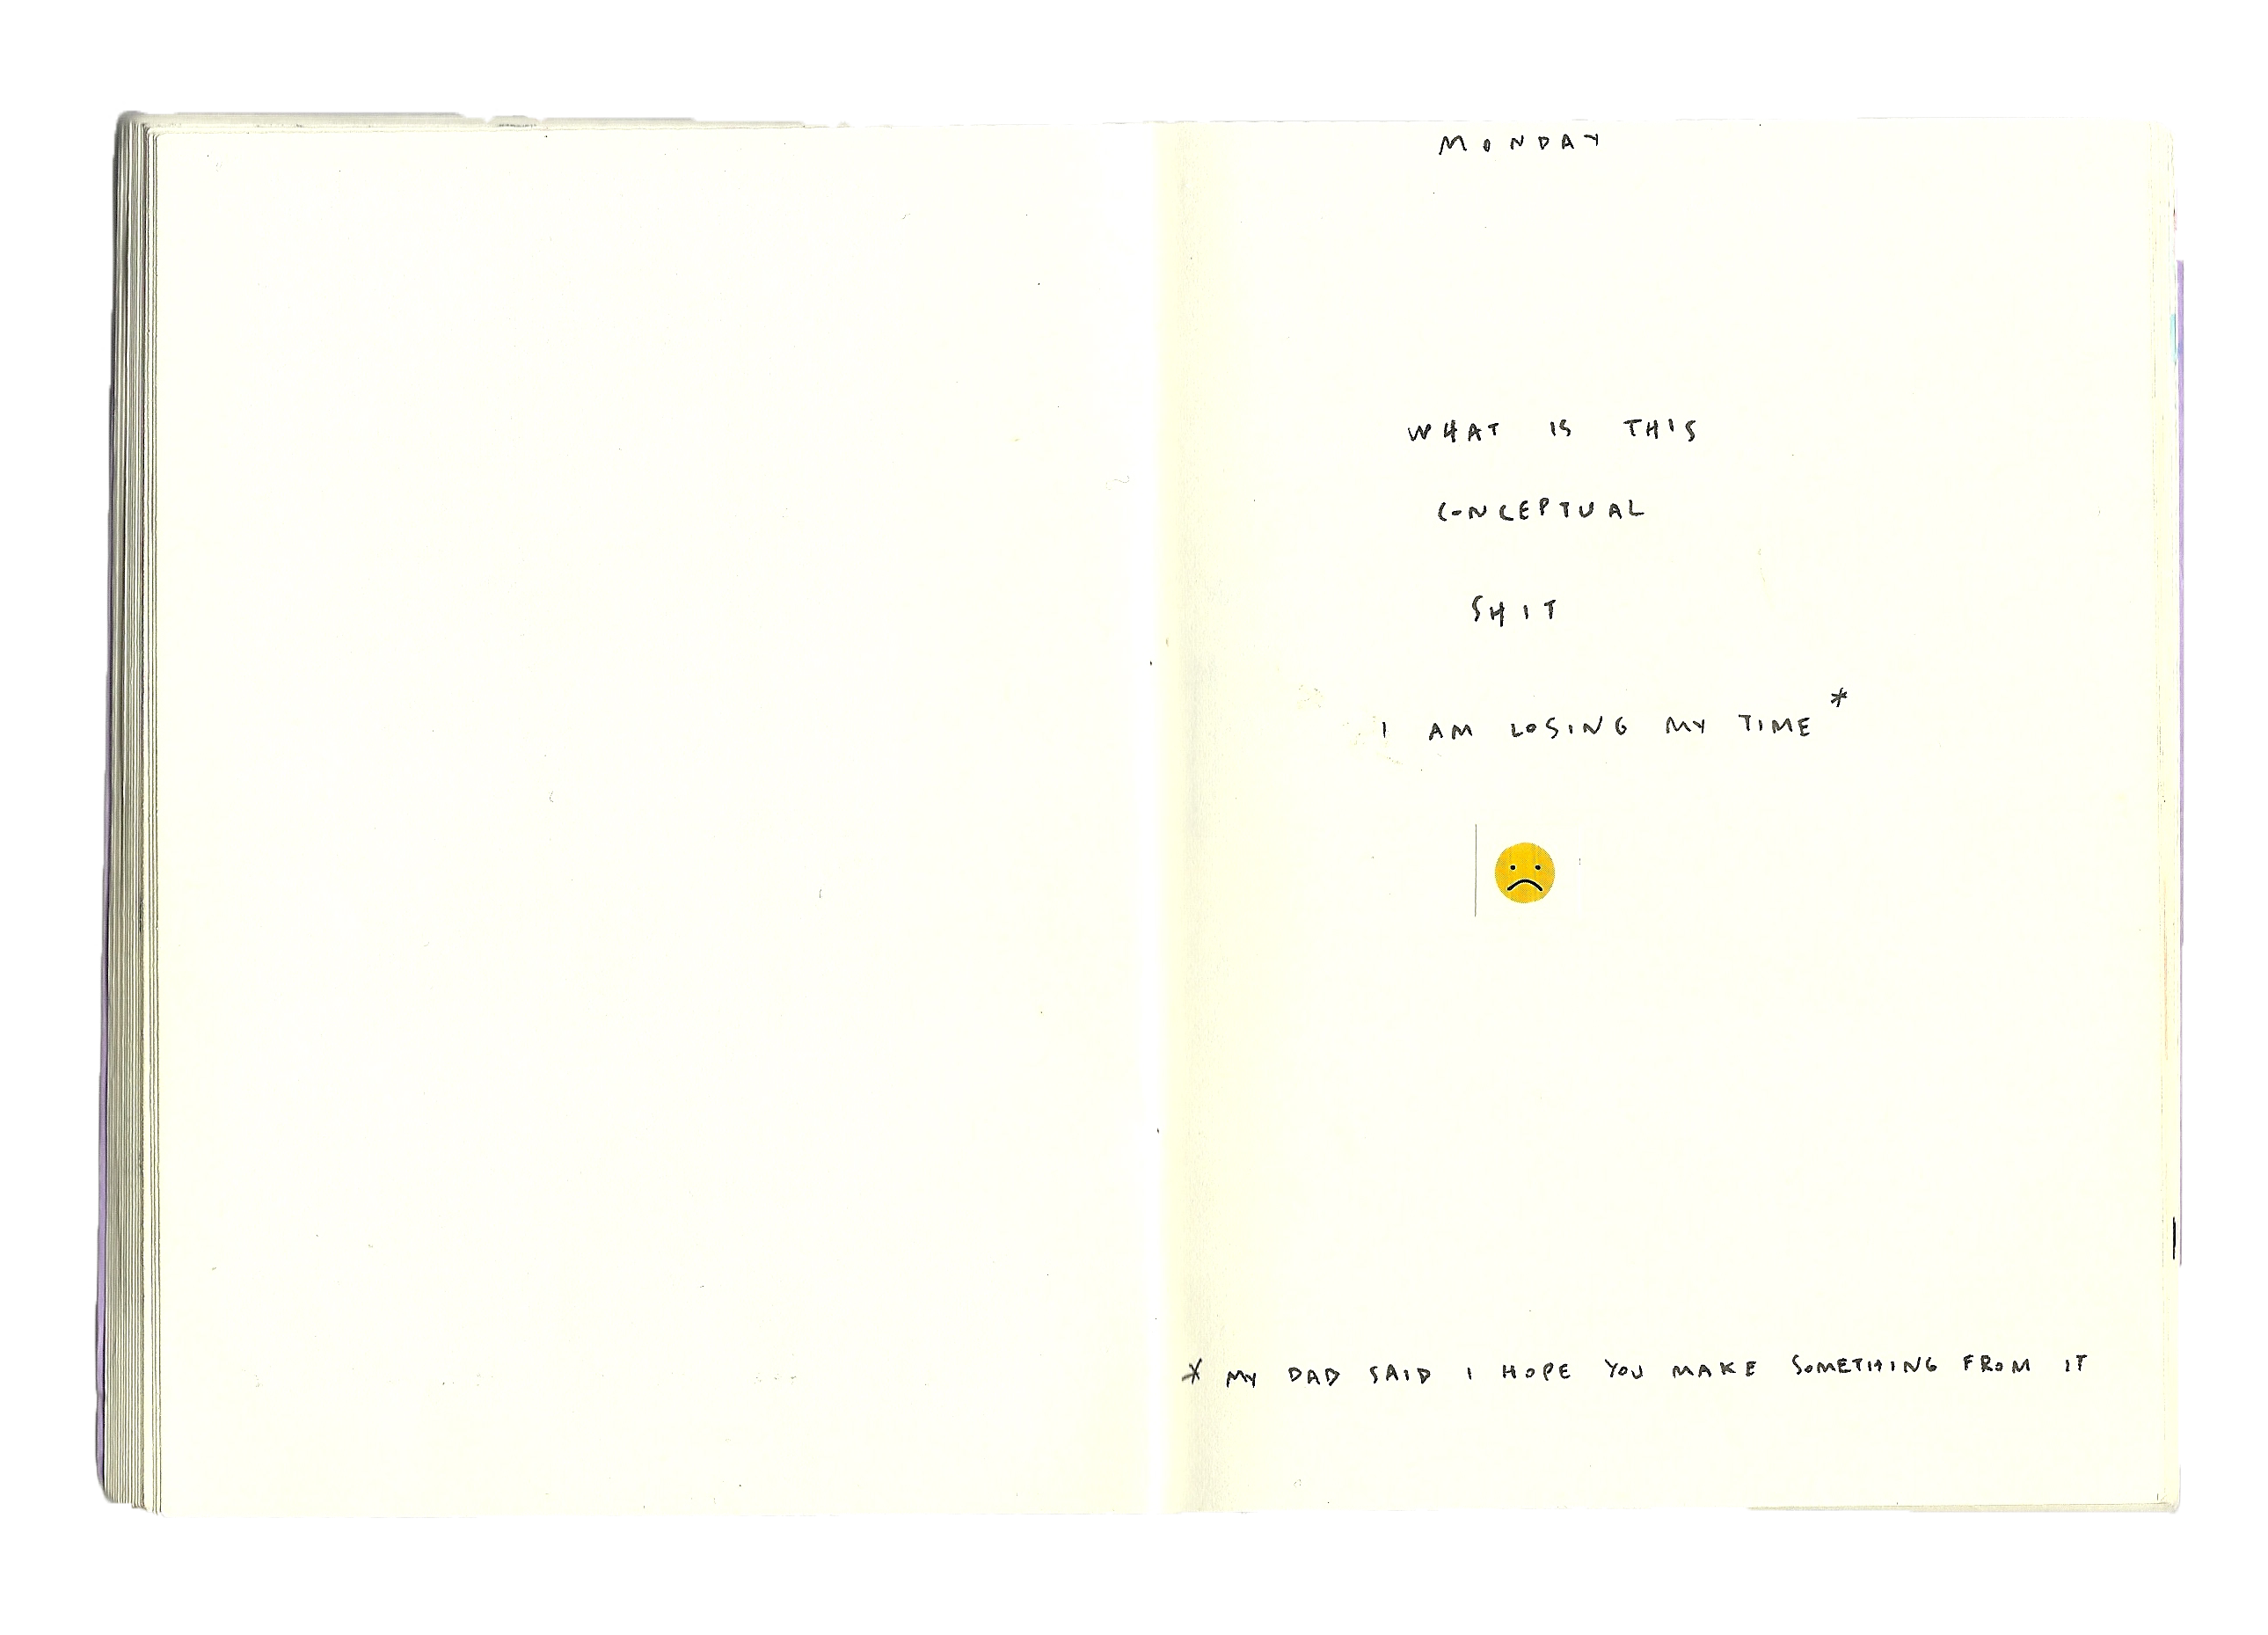 MONDAY
WHAT IS THIS
CONCEPTUAL
SHIT
I AM LOSING MY TIME*
* MY DAD SAID I HOPE YOU MAKE SOMETHING FROM IT